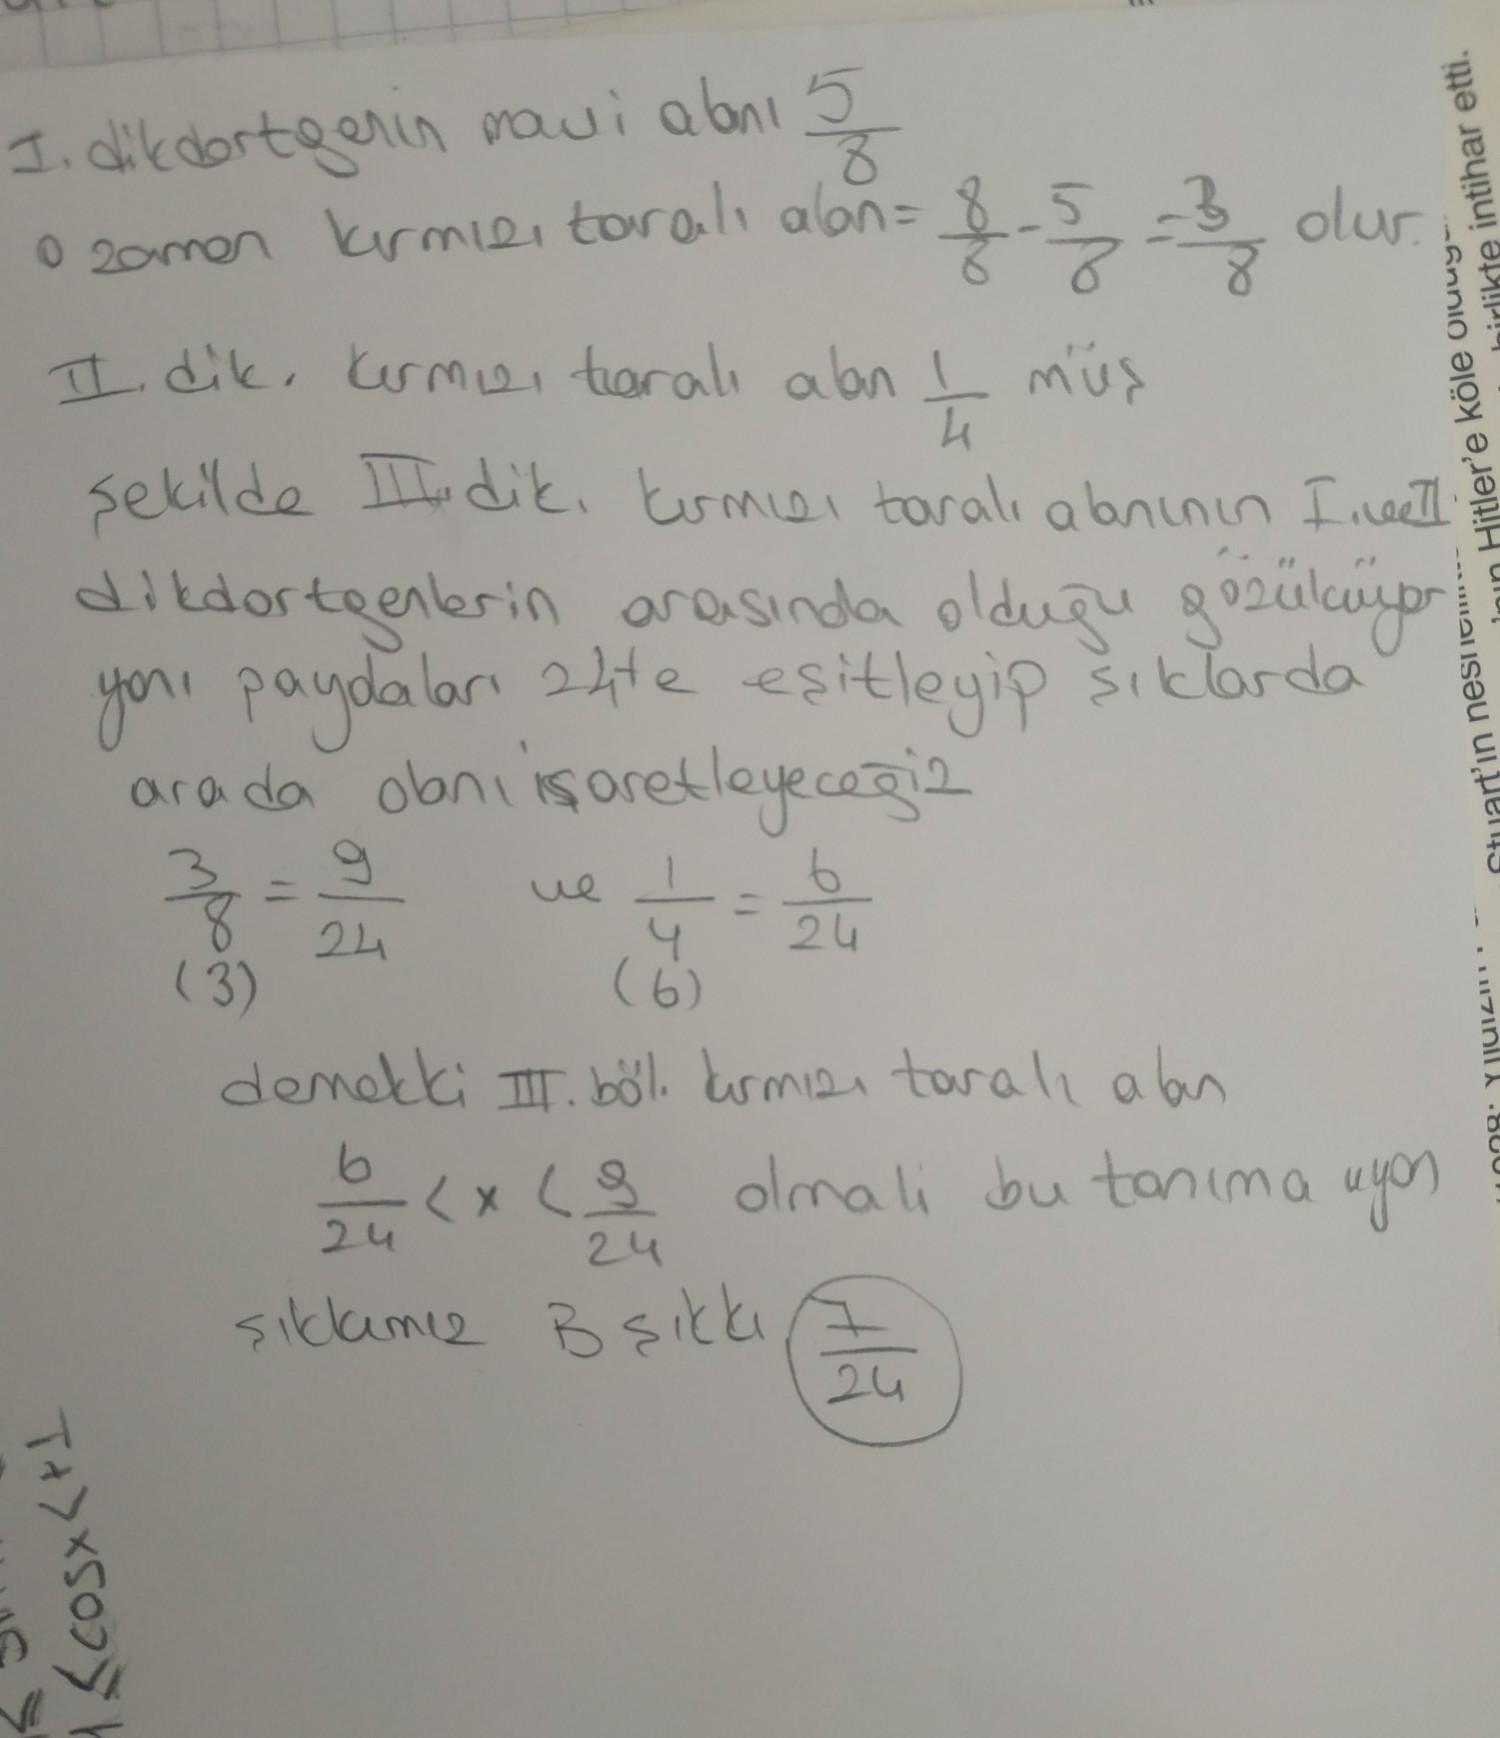 I. dikdortgenin mavi alanı 5/8
O zaman kırmızı taralı alan = 8/8 - 5/8 = 3/8 olur.
II. dik. kırmızı taralı alan 1/4 müş
şekilde III. dik. kırmızı taralı alanının I. ve II
dikdortgenlerin arasında olduğu gözüküyor
yani paydaları 24te eşitleyip şıklarda
arada olanı işaretleyeceğiz
3/8 = 9/24 ve 1/4 = 6/24
(3) (6)
demekki III. böl. kırmızı taralı alan
6/24 < x < 9/24 olmali bu tanıma uyan
şıkkımız B şıkkı 7/24
≤ cosx < +1
Hitler'e köle
birlikte intihar etti.